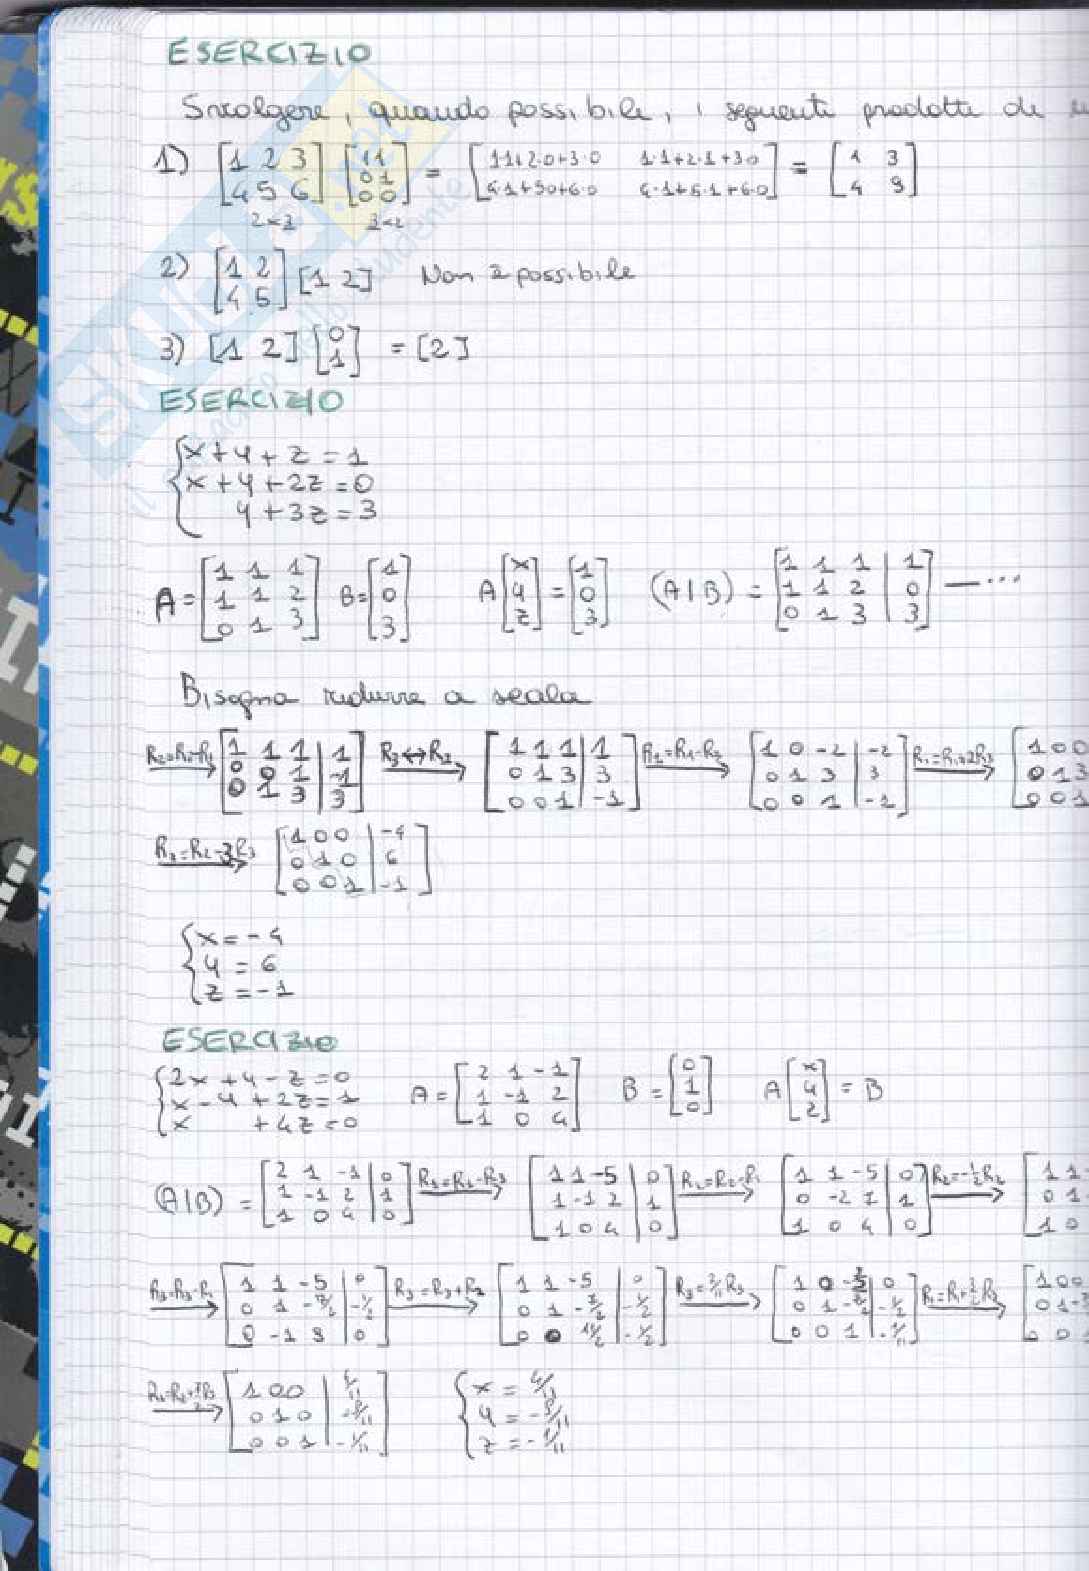 ESERCIZIO
Svolgere, quando possibile, i seguenti prodotti di
1) [1 2 3; 4 5 6] [1 1; 0 1; 0 0] = [1·1+2·0+3·0 1·1+2·1+3·0; 4·1+5·0+6·0 4·1+5·1+6·0] = [1 3; 4 9]
2×3 3×2
2) [1 2; 4 5] [1 2] Non è possibile
3) [1 2] [0; 1] = [2]
ESERCIZIO
x + y + z = 1
x + y + 2z = 0
y + 3z = 3
A = [1 1 1; 1 1 2; 0 1 3] B = [1; 0; 3] A [x; y; z] = [1; 0; 3] (A|B) = [1 1 1 | 1; 1 1 2 | 0; 0 1 3 | 3] — ...
Bisogna ridurre a scala
R2=R2-R1 [1 1 1 | 1; 0 0 1 | -1; 0 1 3 | 3] R3↔R2 [1 1 1 | 1; 0 1 3 | 3; 0 0 1 | -1] R1=R1-R2 [1 0 -2 | -2; 0 1 3 | 3; 0 0 1 | -1] R1=R1+2R3 [1 0 0; 0 1 3; 0 0 1
R2=R2-3R3 [1 0 0 | -4; 0 1 0 | 6; 0 0 1 | -1]
x = -4
y = 6
z = -1
ESERCIZIO
2x + y - z = 0
x - y + 2z = 1
x + 4z = 0
A = [2 1 -1; 1 -1 2; 1 0 4] B = [0; 1; 0] A [x; y; z] = B
(A|B) = [2 1 -1 | 0; 1 -1 2 | 1; 1 0 4 | 0] R1=R1-R3 [1 1 -5 | 0; 1 -1 2 | 1; 1 0 4 | 0] R2=R2-R1 [1 1 -5 | 0; 0 -2 7 | 1; 1 0 4 | 0] R2=-1/2R2 [1 1; 0 1; 1 0
R3=R3-R1 [1 1 -5 | 0; 0 1 -7/2 | -1/2; 0 -1 9 | 0] R3=R3+R2 [1 1 -5 | 0; 0 1 -7/2 | -1/2; 0 0 11/2 | -1/2] R3=2/11R3 [1 0 | 0; 0 1 -7/2 | -1/2; 0 0 1 | -1/11] [1 0 0; 0 1; 0 0
[1 0 0 | 4/11; 0 1 0 | -9/11; 0 0 1 | -1/11]
x = 4/11
y = -9/11
z = -1/11